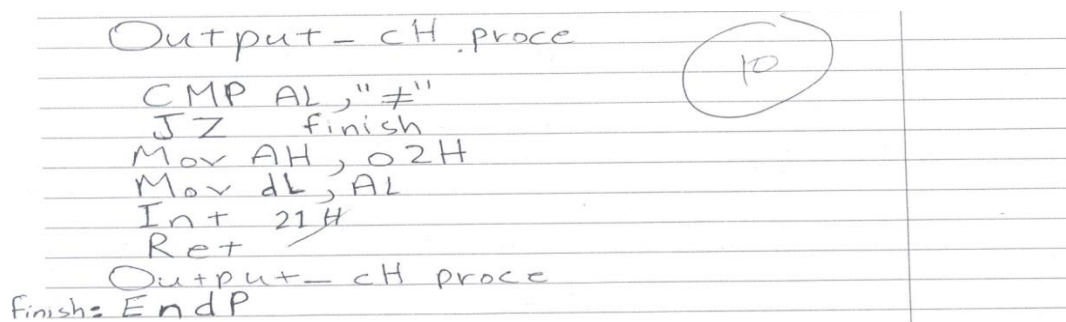 Output_ cH proce
10
CMP AL,"≠"
JZ finish
Mov AH, 02H
Mov dL, AL
Int 21H
Ret
Output_ cH proce
finish: EndP